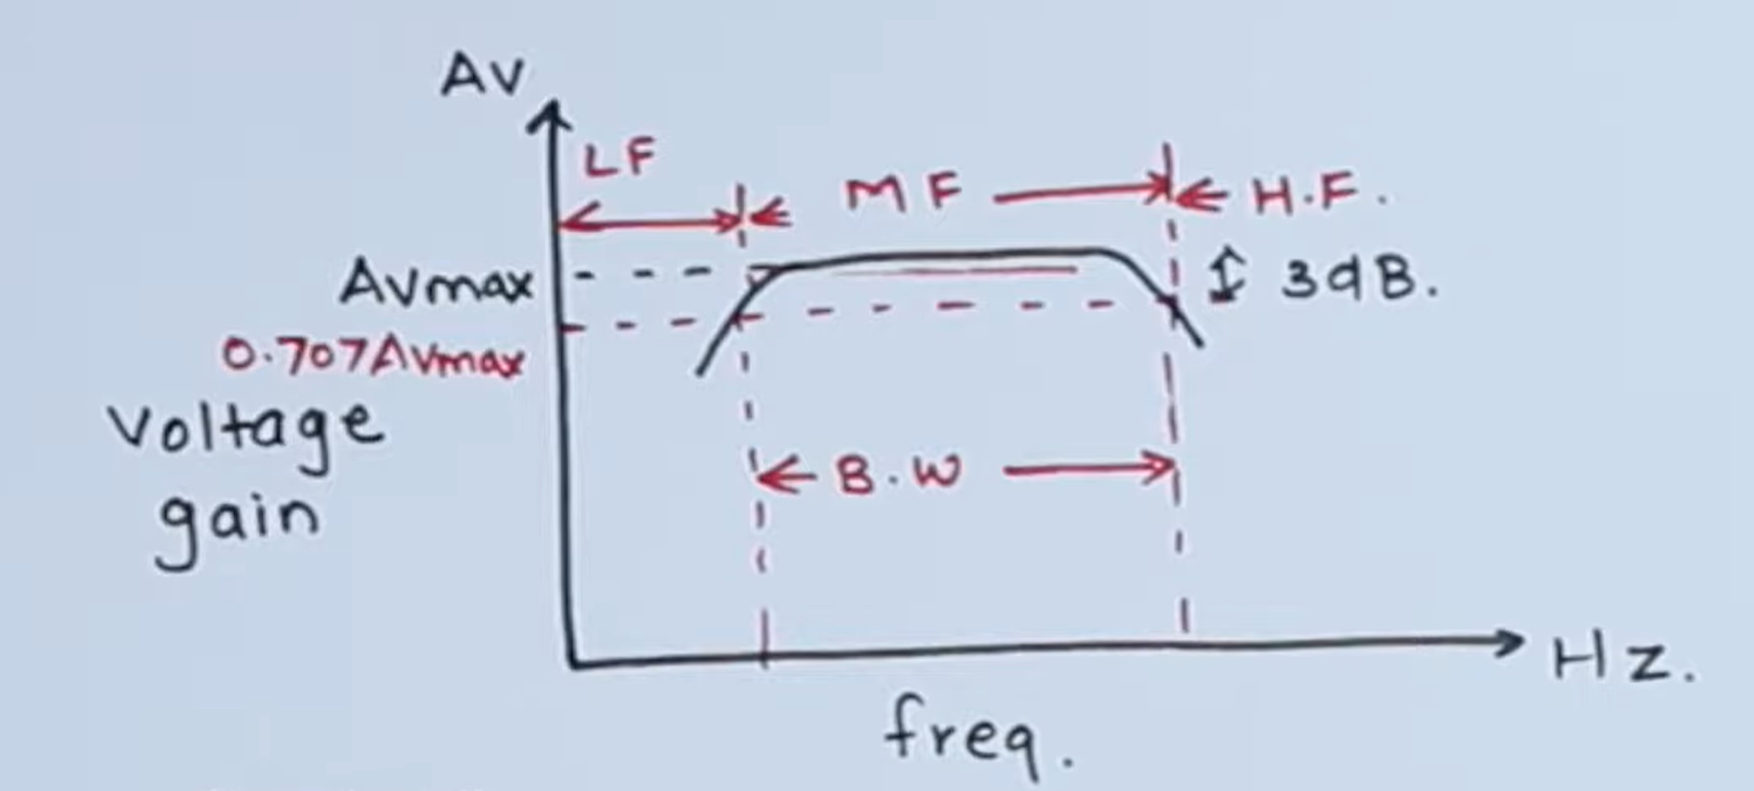 Av
LF
MF
H.F.
Avmax
3dB.
0.707Avmax
Voltage
gain
B.W
Hz.
freq.